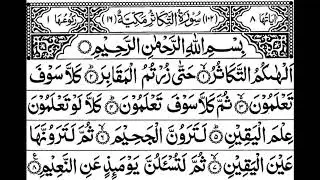 اٰيَاتُهَا ٨ (١٠٢) سُوْرَةُ التَّكَاثُرِ مَكِّيَّةٌ (١٦) رُكُوْعُهَا ١
بِسْمِ اللّٰهِ الرَّحْمٰنِ الرَّحِيْمِ
اَلْهٰىكُمُ التَّكَاثُرُ ۝١ حَتّٰى زُرْتُمُ الْمَقَابِرَ ۝٢ كَلَّا سَوْفَ
تَعْلَمُوْنَ ۝٣ ثُمَّ كَلَّا سَوْفَ تَعْلَمُوْنَ ۝٤ كَلَّا لَوْ تَعْلَمُوْنَ
عِلْمَ الْيَقِيْنِ ۝٥ لَتَرَوُنَّ الْجَحِيْمَ ۝٦ ثُمَّ لَتَرَوُنَّهَا
عَيْنَ الْيَقِيْنِ ۝٧ ثُمَّ لَتُسْئَلُنَّ يَوْمَئِذٍ عَنِ النَّعِيْمِ ۝٨